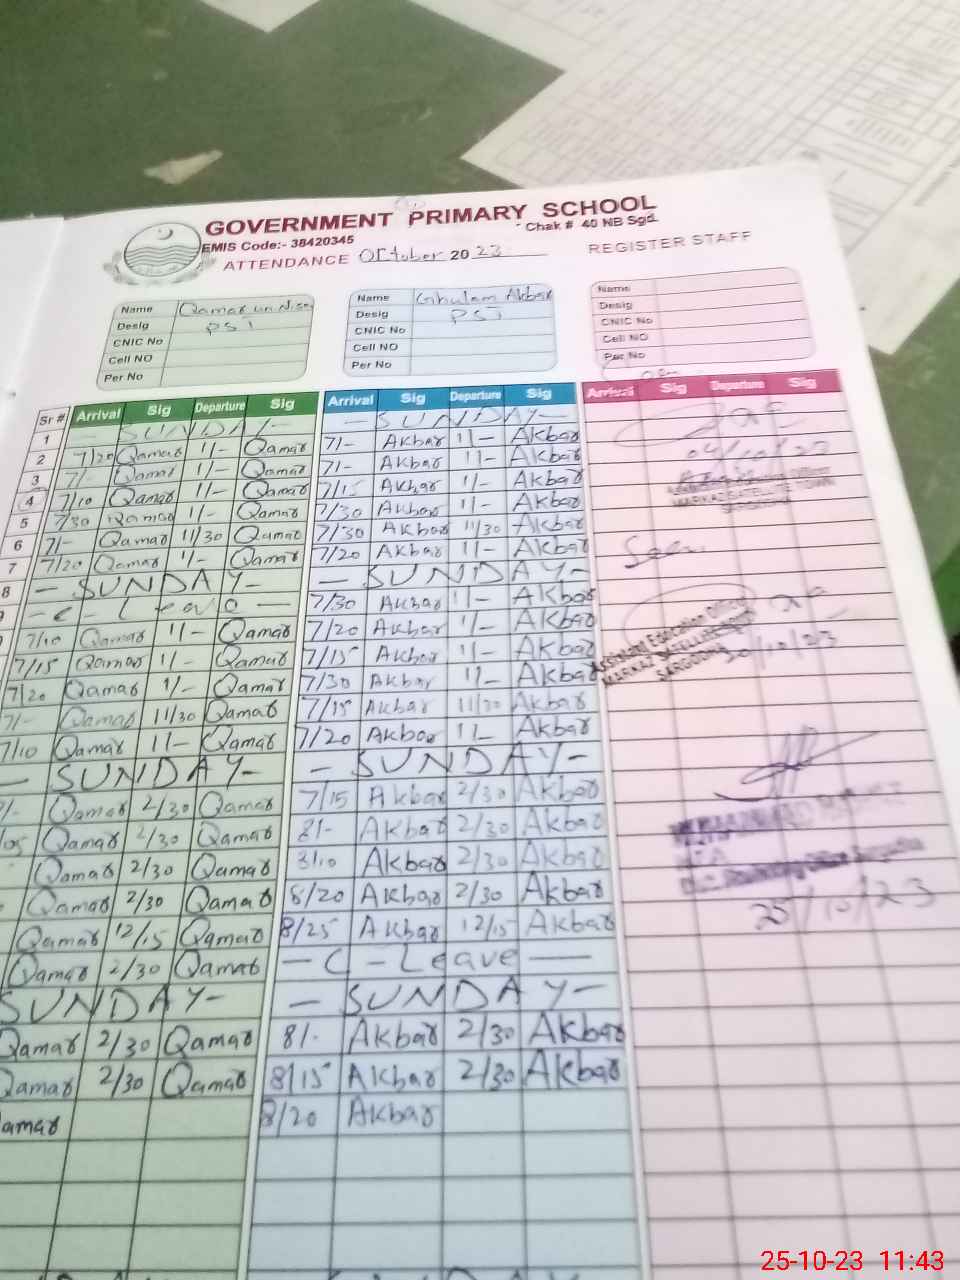 GOVERNMENT PRIMARY SCHOOL
Chak # 40 NB Sgd.
EMIS Code:- 38420345
ATTENDANCE October 2023 REGISTER STAFF
Name Qamar un Nisa Name Ghulam Akbar Name
Desig PST Desig PST Desig
CNIC No CNIC No CNIC No
Cell NO Cell NO Cell NO
Per No Per No Per No
Sr # Arrival Sig Departure Sig Arrival Sig Departure Sig Arrival Sig Departure Sig
1 — SUNDAY — — SUNDAY —
2 7/20 Qamar 1/— Qamar 7/— Akbar 1/— Akbar
3 7/- Qamar 1/— Qamar 7/— Akbar 1/— Akbar
4 7/10 Qamar 1/— Qamar 7/15 Akbar 1/— Akbar
5 7/30 Qamar 1/— Qamar 7/30 Akbar 1/— Akbar
6 7/— Qamar 11/30 Qamar 7/30 Akbar 11/30 Akbar
7 7/20 Qamar 1/— Qamar 7/20 Akbar 1/— Akbar
8 — SUNDAY — — SUNDAY —
— C - Leave — 7/30 Akbar 1/— Akbar
7/10 Qamar 1/— Qamar 7/20 Akbar 1/— Akbar
7/15 Qamar 1/— Qamar 7/15 Akbar 1/— Akbar
7/20 Qamar 1/— Qamar 7/30 Akbar 1/— Akbar
7/— Qamar 11/30 Qamar 7/15 Akbar 11/30 Akbar
7/10 Qamar 1/— Qamar 7/20 Akbar 1/— Akbar
— SUNDAY — — SUNDAY —
Qamar 2/30 Qamar 7/15 Akbar 2/30 Akbar
Qamar 2/30 Qamar 8/- Akbar 2/30 Akbar
Qamar 2/30 Qamar 8/10 Akbar 2/30 Akbar
Qamar 2/30 Qamar 8/20 Akbar 2/30 Akbar
Qamar 12/15 Qamar 8/25 Akbar 12/15 Akbar
Qamar 2/30 Qamar — C - Leave —
SUNDAY — — SUNDAY —
Qamar 2/30 Qamar 8/- Akbar 2/30 Akbar
Qamar 2/30 Qamar 8/15 Akbar 2/30 Akbar
amar 8/20 Akbar
MARKAZ SATELLITE TOWN
SARGODHA
Seen
Assistant Education Officer
MARKAZ SATELLITE TOWN
SARGODHA
25/10/23
25-10-23 11:43